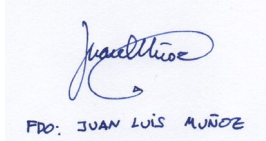 FDO: JUAN LUIS MUÑOZ